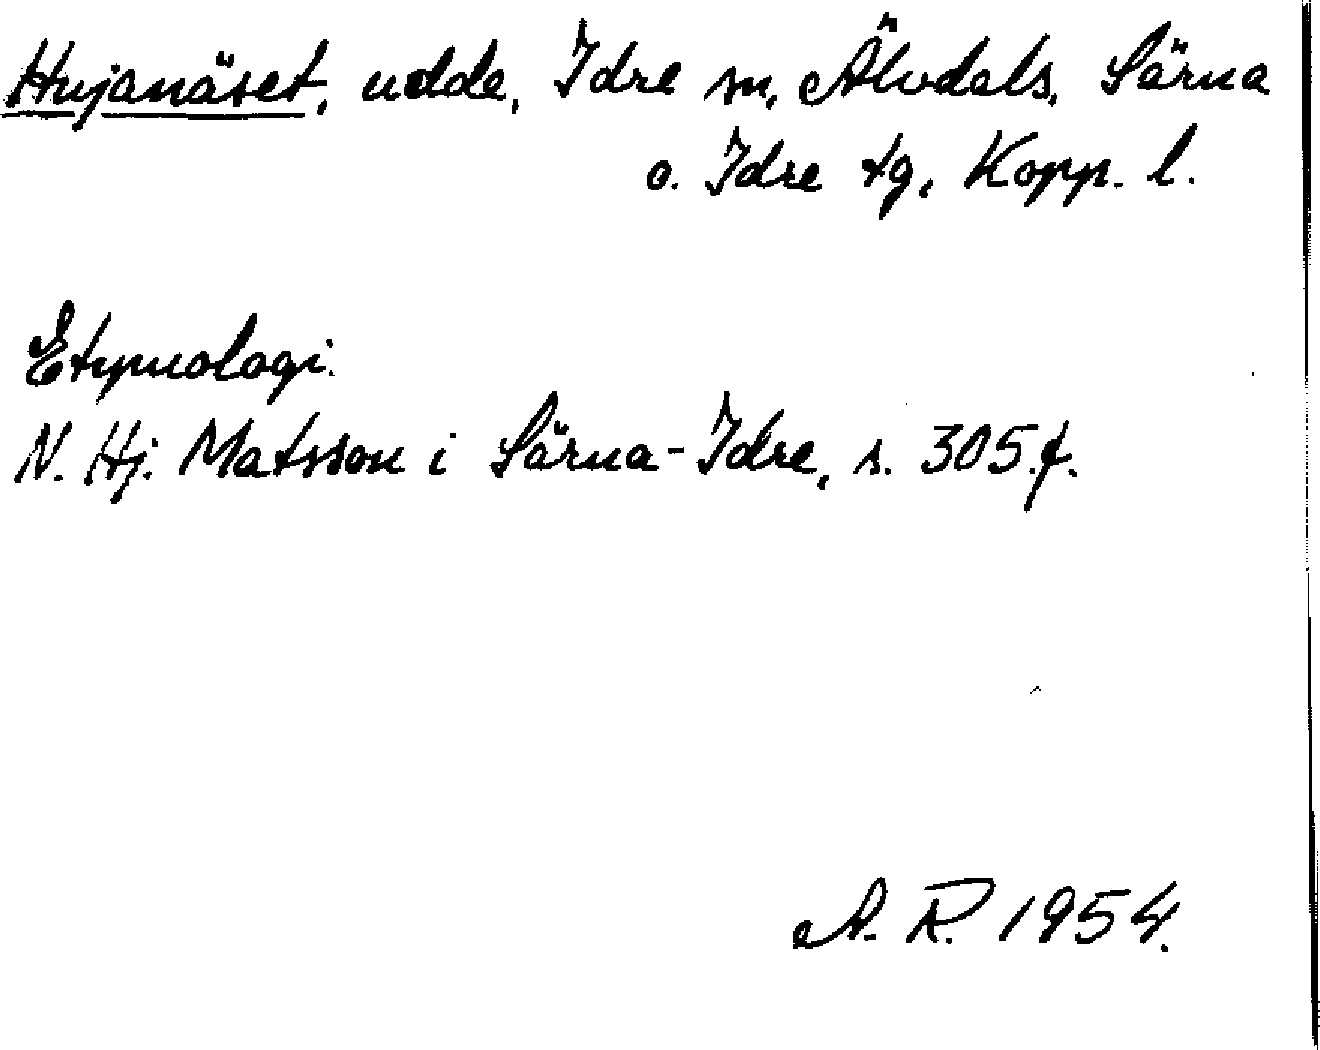 Hujanäset, udde, Idre sn, Älvdals, Särna
o. Idre tg, Kopp. l.
Etymologi.
N. Hj. Matsson i Särna-Idre, s. 305.f.
A. R. 1954.